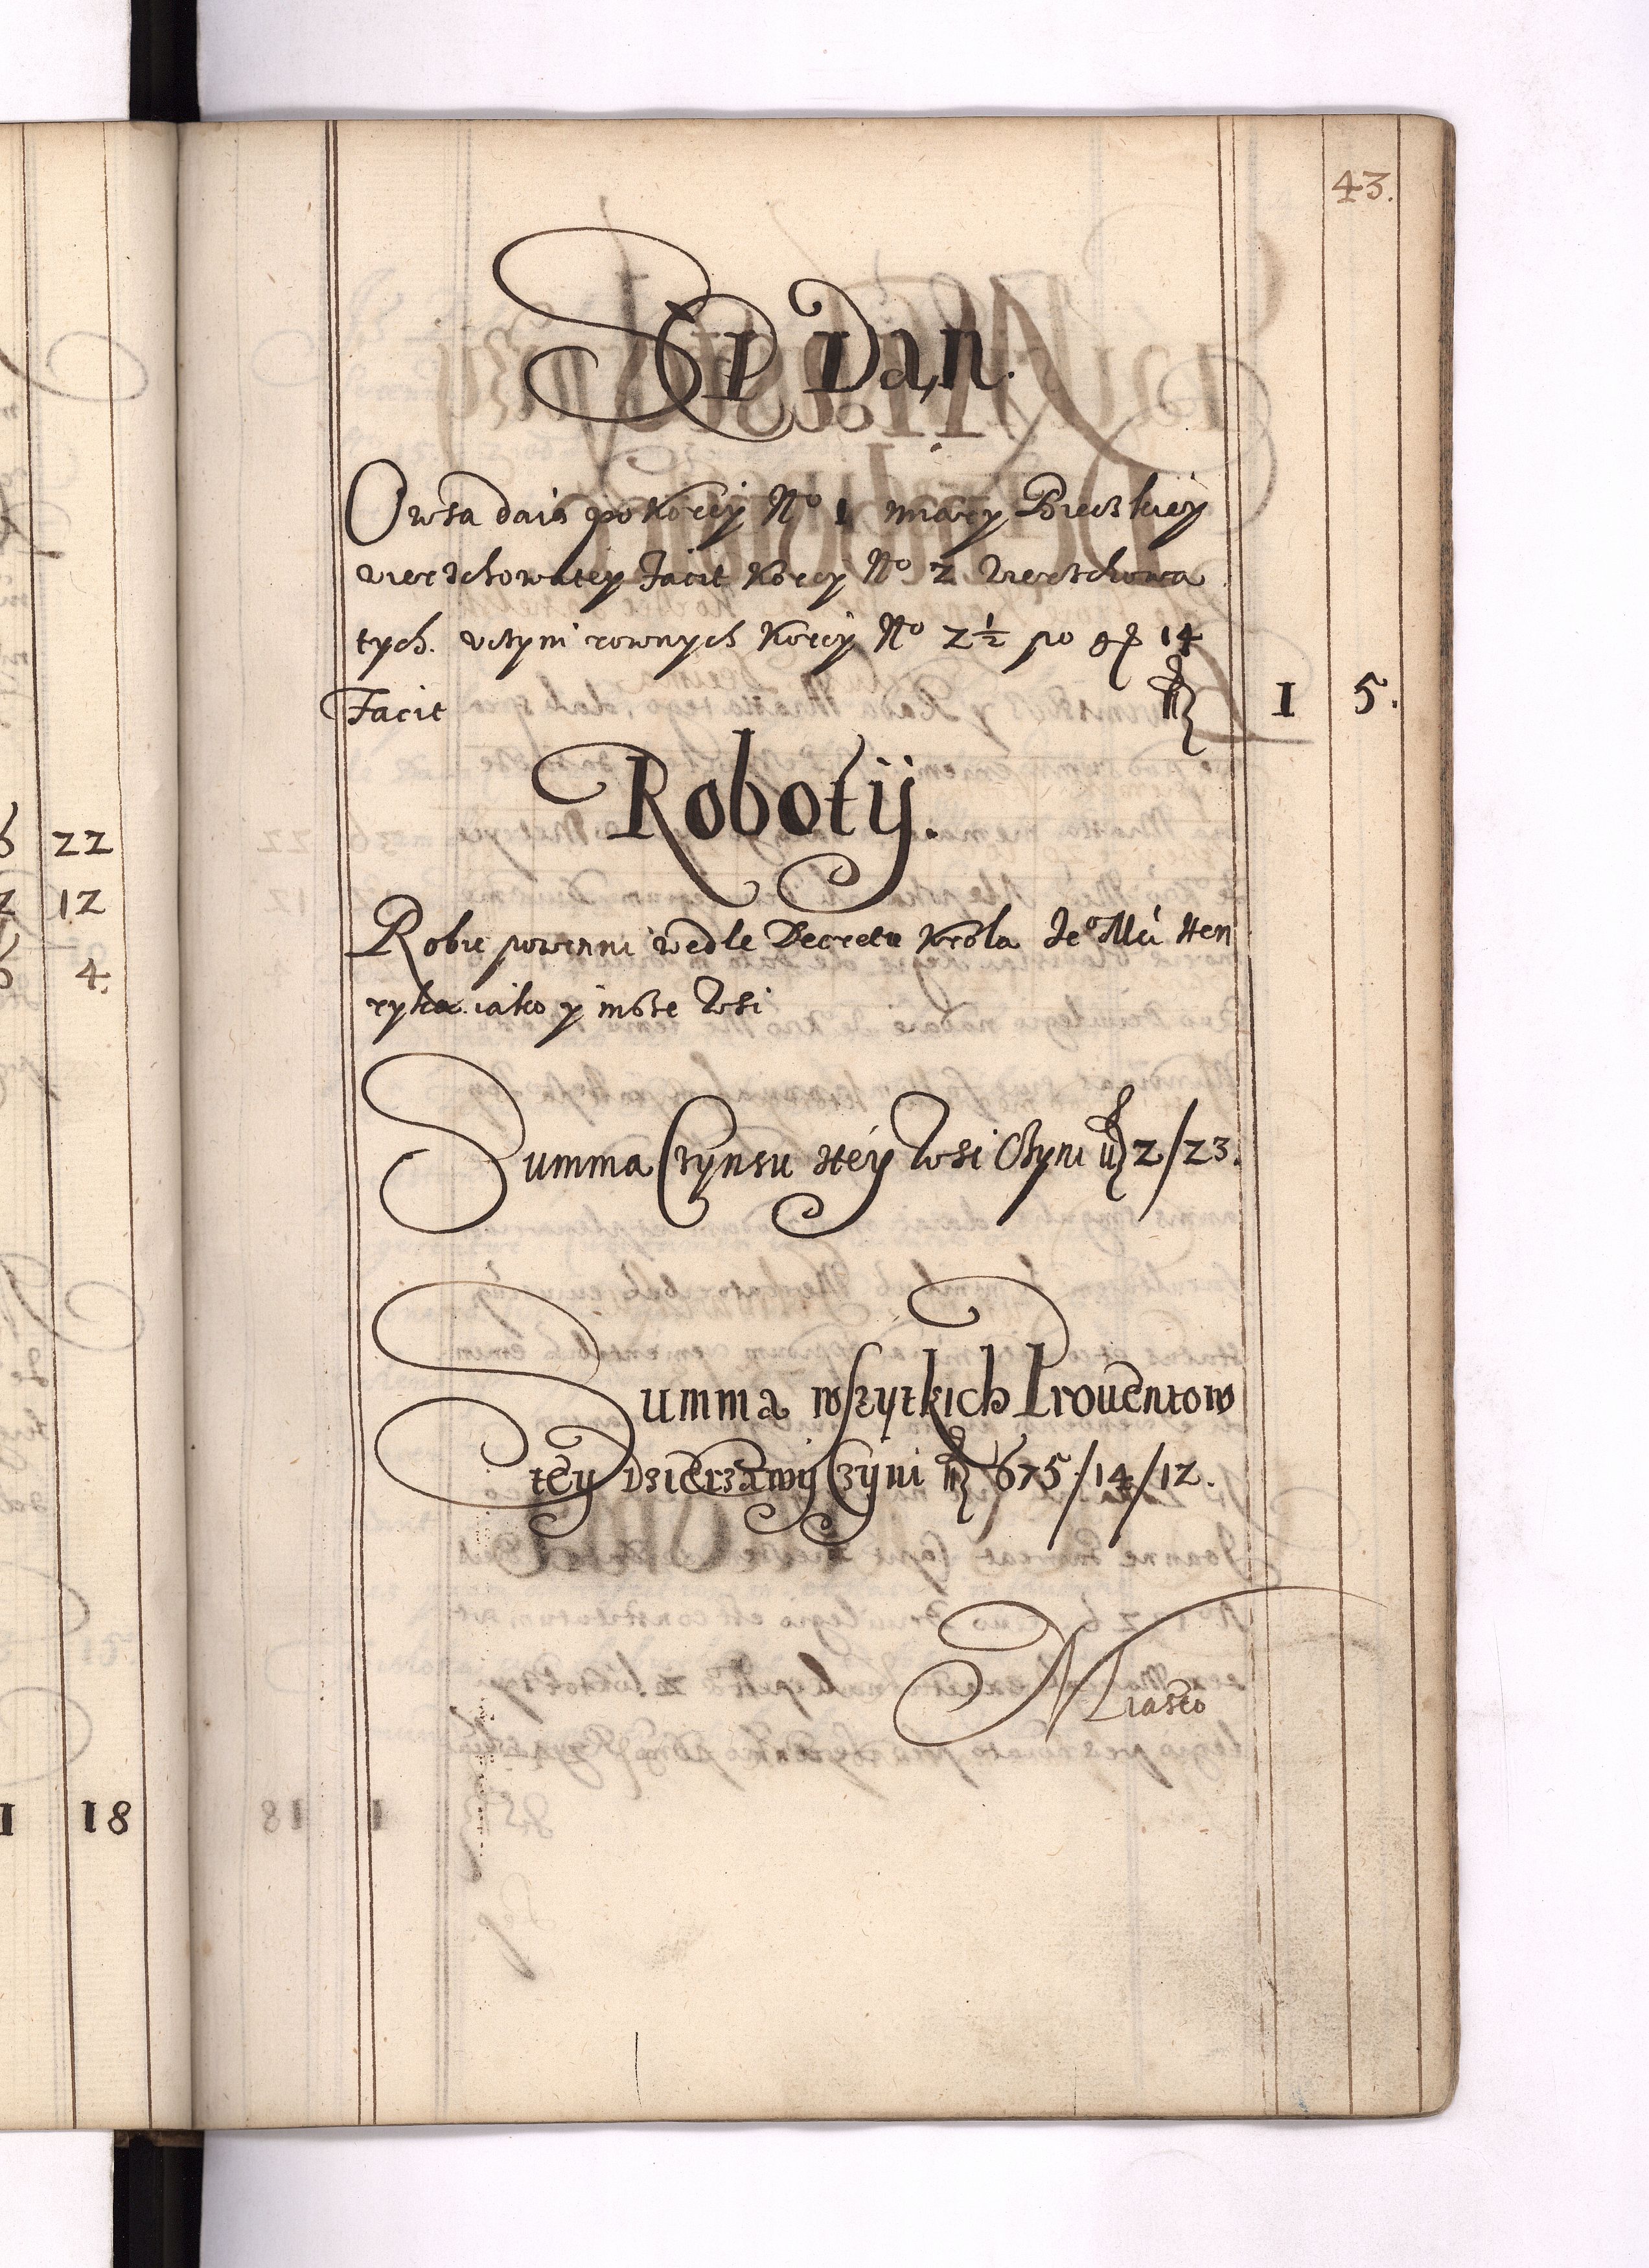 43.
Sep Dan.
Owsa daią po Korcÿ No 1 miary Bieckieÿ
wierzchowateÿ Facit Korcy No 2 wierzchowa
tych. vczyni rownych Korcÿ No 2½ po gr 14
Facit fl 1 5.
Robotÿ.
Robie powinni wedle Decretu Krola Jeo Mći Hen
ryka. iako y insze Wsi
Summa Czynsu stéy Wsi Czyni fl 2/23.
Summa wszytkich Prouentow
téy Dzierzawÿ Czÿni fl 675/14/12.
Miasto
22
12
4.
18